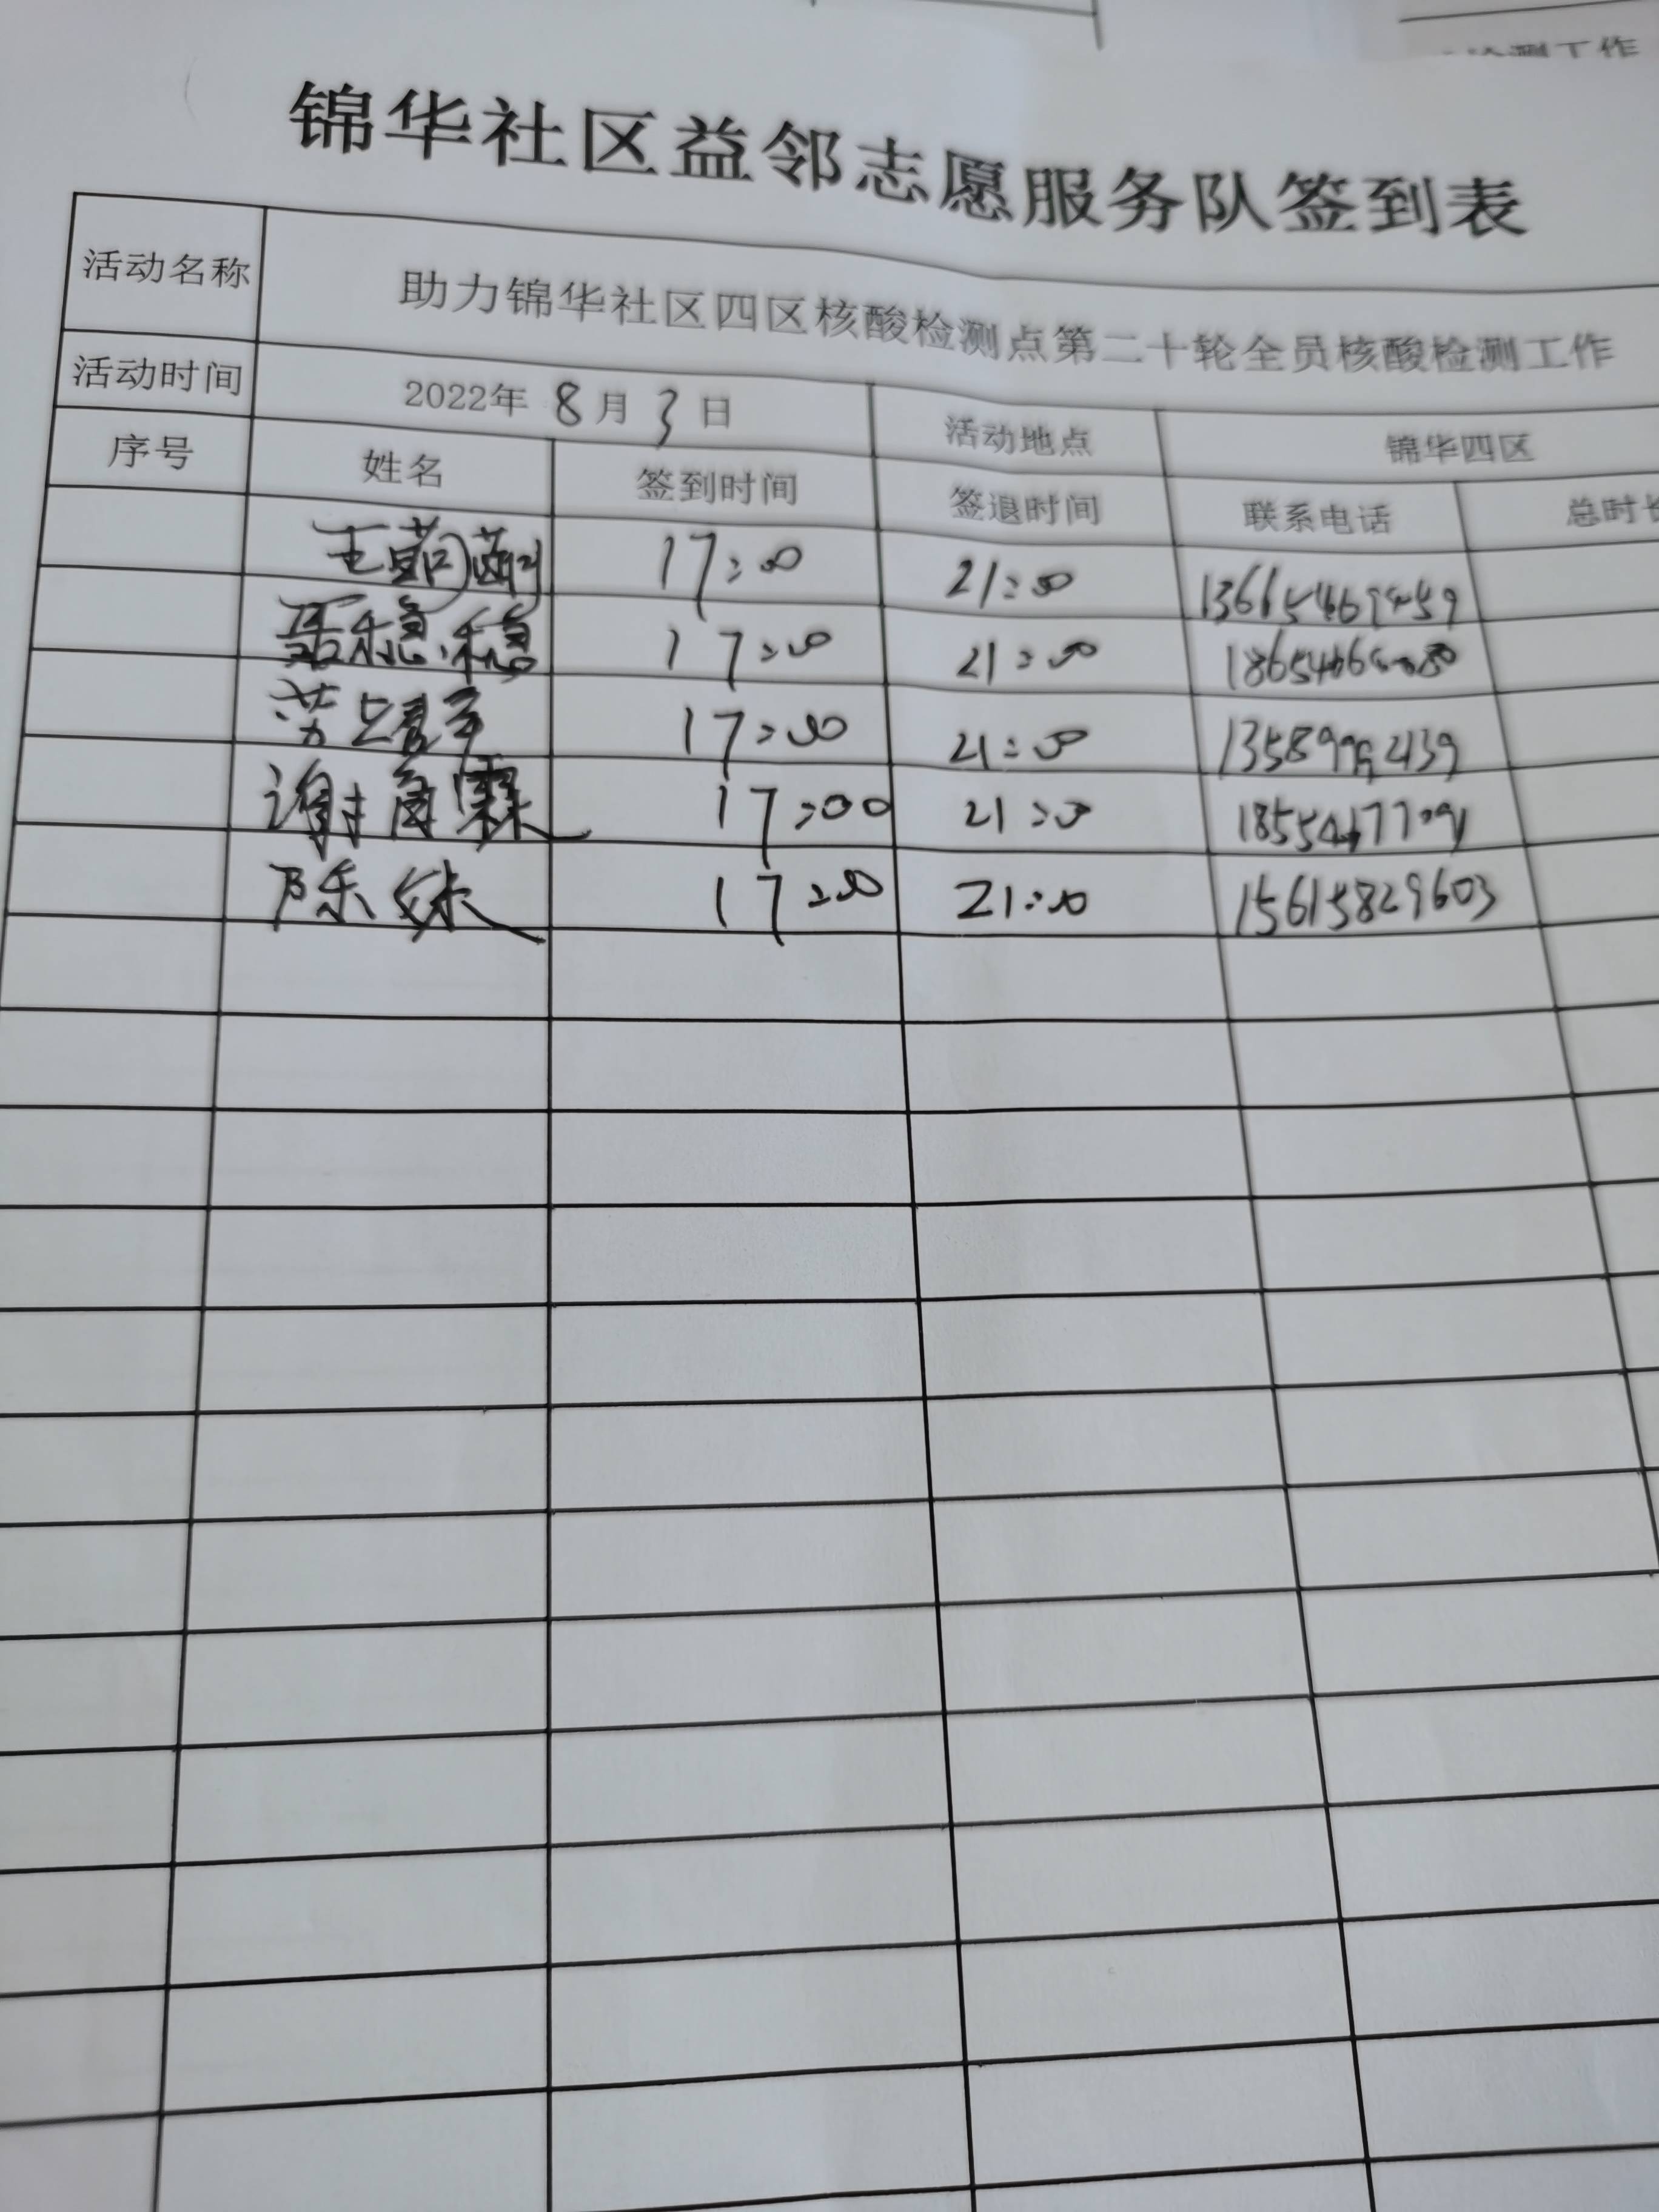 检测工作
锦华社区益邻志愿服务队签到表
活动名称 助力锦华社区四区核酸检测点第二十轮全员核酸检测工作
活动时间 2022年 8 月 3 日 活动地点 锦华四区
序号 姓名 签到时间 签退时间 联系电话 总时长
王 17:00 21:00
聂稳稳 17:00 21:00
17:00 21:00
谢 霖 17:00 21:00
陈姝 17:00 21:00 15615829603